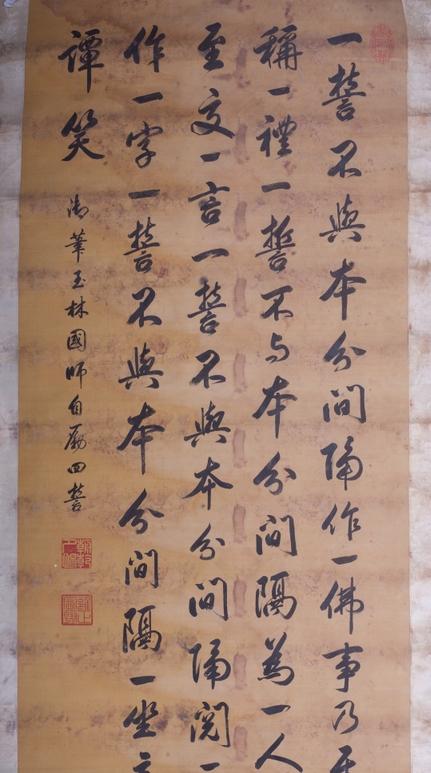 一誓不與本分間隔作一佛事乃至
稱一禮一誓不与本分間隔為一人
至交一言一誓不與本分間隔閱一
作一字一誓不與本分間隔一坐立
譚笑
御筆玉林國師自勵四誓